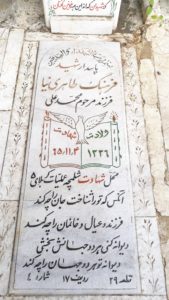 پاسدار شهید
فرهنگ طاهری نیا
فرزند مرحوم محمد علی
ولادت شهادت
۱۳۴۶ ۶۵/۱۱/۳
محل شهادت شلمچه عملیات کربلای ۵
آنکس که تو را شناخت جان را چه کند
فرزند و عیال و خانمان را چه کند
دیوانه کنی هر دو جهانش بخشی
دیوانه تو هر دو جهان را چه کند
قطعه ۲۹ ردیف ۱۷ شماره ۴